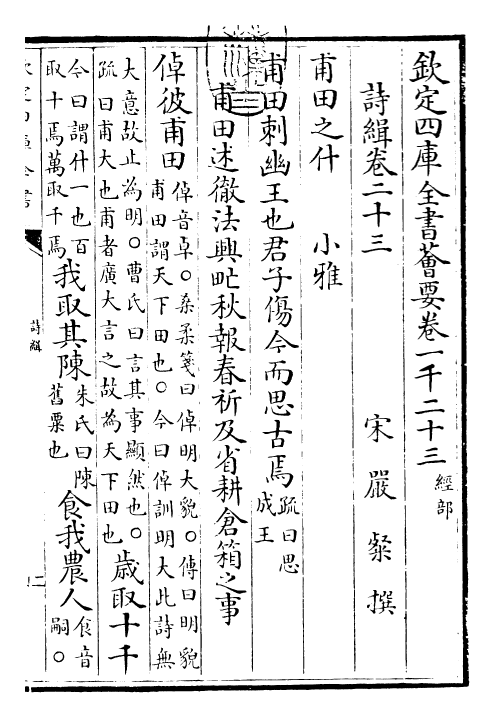 欽定四庫全書薈要卷一千二十三經部
詩緝卷二十三
宋嚴粲撰
甫田之什
小雅
甫田刺幽王也君子傷今而思古焉疏曰思成王
甫田述徹法興甿秋報春祈及省耕倉箱之事
倬彼甫田倬音卓○桑柔箋曰倬明大貌○傳曰明貌甫田謂天下田也○今曰倬訓明大此詩無
大意故止為明○曹氏曰言其事顯然也○疏曰甫大也甫者廣大言之故為天下田也歲取十千
今曰謂什一也百取十焉萬取千焉我取其陳朱氏曰陳舊粟也食我農人食音嗣○
詩緝
二